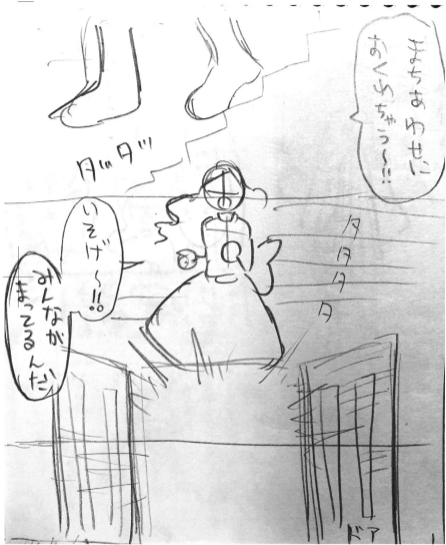 まちあわせに
おくれちゃう〜!!
ダッダッ
タ
タ
タ
タ
いそげ〜!!
みんなが
まってるんだ
ドア